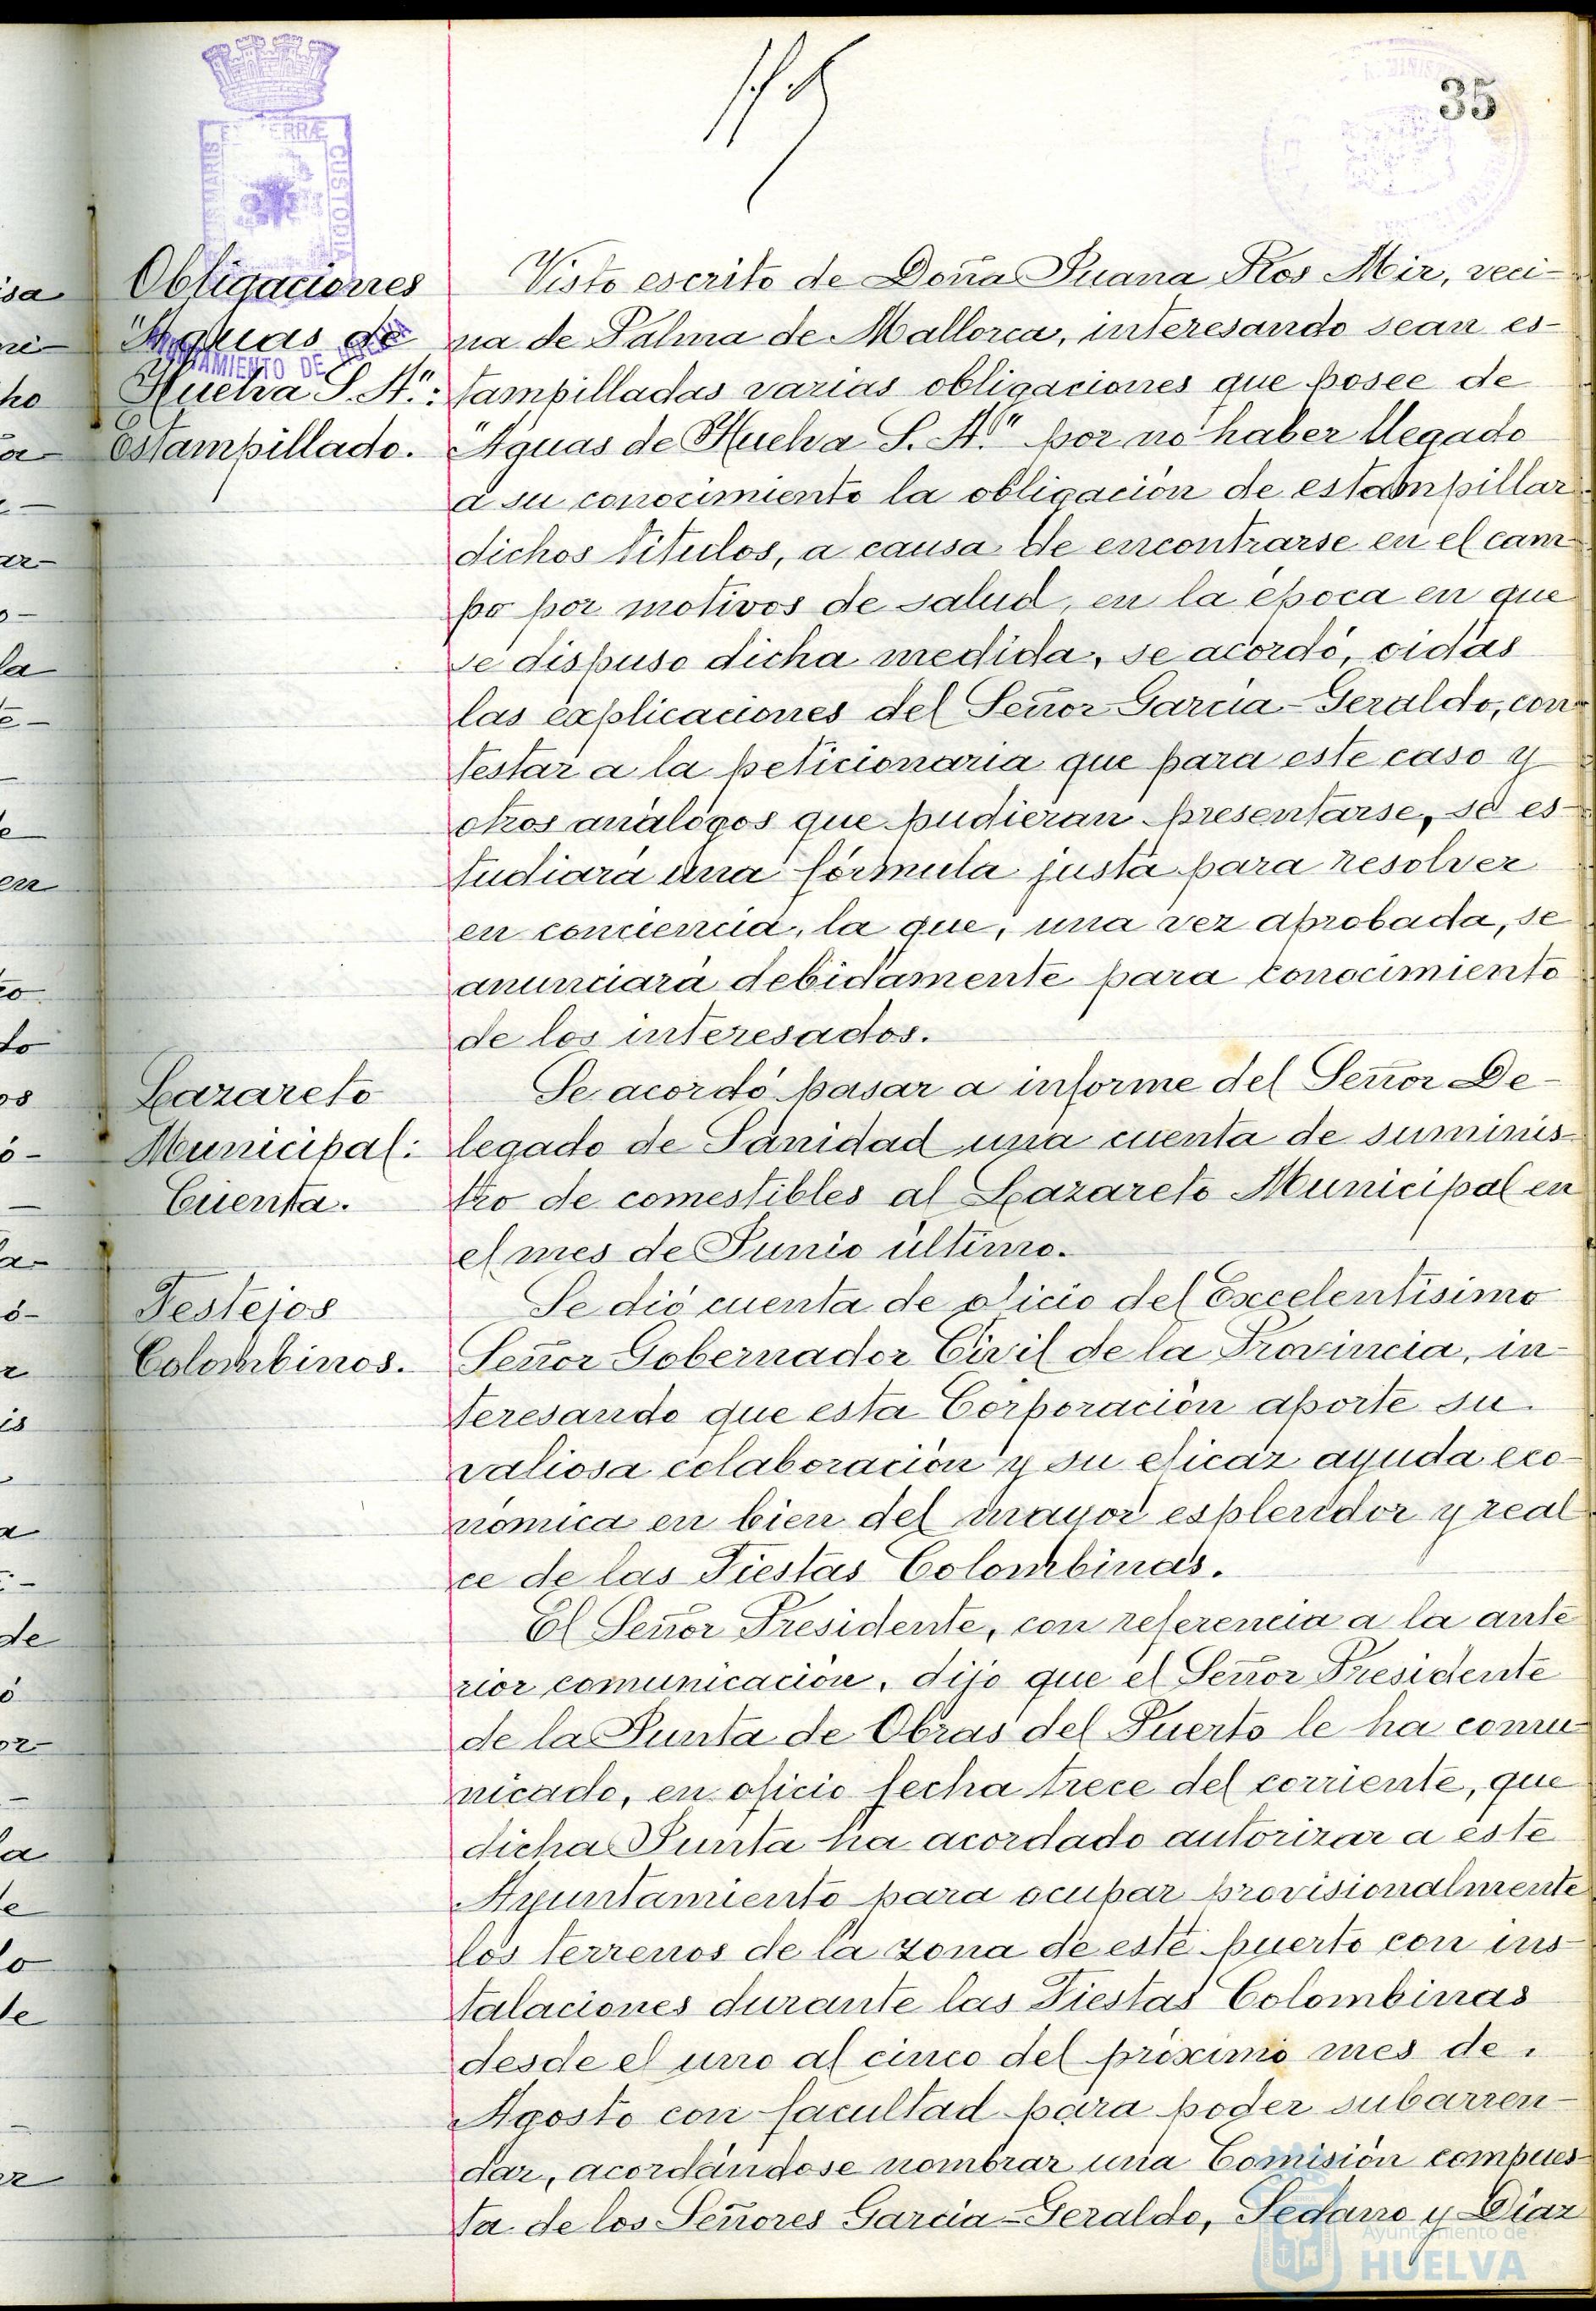 35
Obligaciones
"Aguas de
Huelva S. A.":
Estampillado.
Visto escrito de Doña Juana Ros Mir, veci-
na de Palma de Mallorca, interesando sean es-
tampilladas varias obligaciones que posee de
"Aguas de Huelva S. A." por no haber llegado
a su conocimiento la obligación de estampillar
dichos títulos, a causa de encontrarse en el cam-
po por motivos de salud, en la época en que
se dispuso dicha medida, se acordó, oidas
las explicaciones del Señor Garcia-Geraldo, con-
testar a la peticionaria que para este caso y
otros análogos que pudieran presentarse, se es-
tudiará una fórmula justa para resolver
en conciencia, la que, una vez aprobada, se
anunciará debidamente para conocimiento
de los interesados.
Lazareto
Municipal:
Cuenta.
Se acordó pasar a informe del Señor De-
legado de Sanidad una cuenta de suminis-
tro de comestibles al Lazareto Municipal en
el mes de Junio último.
Festejos
Colombinos.
Se dió cuenta de oficio del Excelentísimo
Señor Gobernador Civil de la Provincia, in-
teresando que esta Corporación aporte su
valiosa colaboración y su eficaz ayuda eco-
nómica en bien del mayor esplendor y real-
ce de las Fiestas Colombinas.
El Señor Presidente, con referencia a la ante-
rior comunicación, dijo que el Señor Presidente
de la Junta de Obras del Puerto le ha comu-
nicado, en oficio fecha trece del corriente, que
dicha Junta ha acordado autorizar a éste
Ayuntamiento para ocupar provisionalmente
los terrenos de la zona de este puerto con ins-
talaciones durante las Fiestas Colombinas
desde el uno al cinco del próximo mes de
Agosto con facultad para poder subarren-
dar, acordándose nombrar una Comisión compues-
ta de los Señores Garcia-Geraldo, Sedano y Díaz
TERRÆ
CUSTODIA
MARIS
AYUNTAMIENTO DE HUELVA
Ayuntamiento de
HUELVA